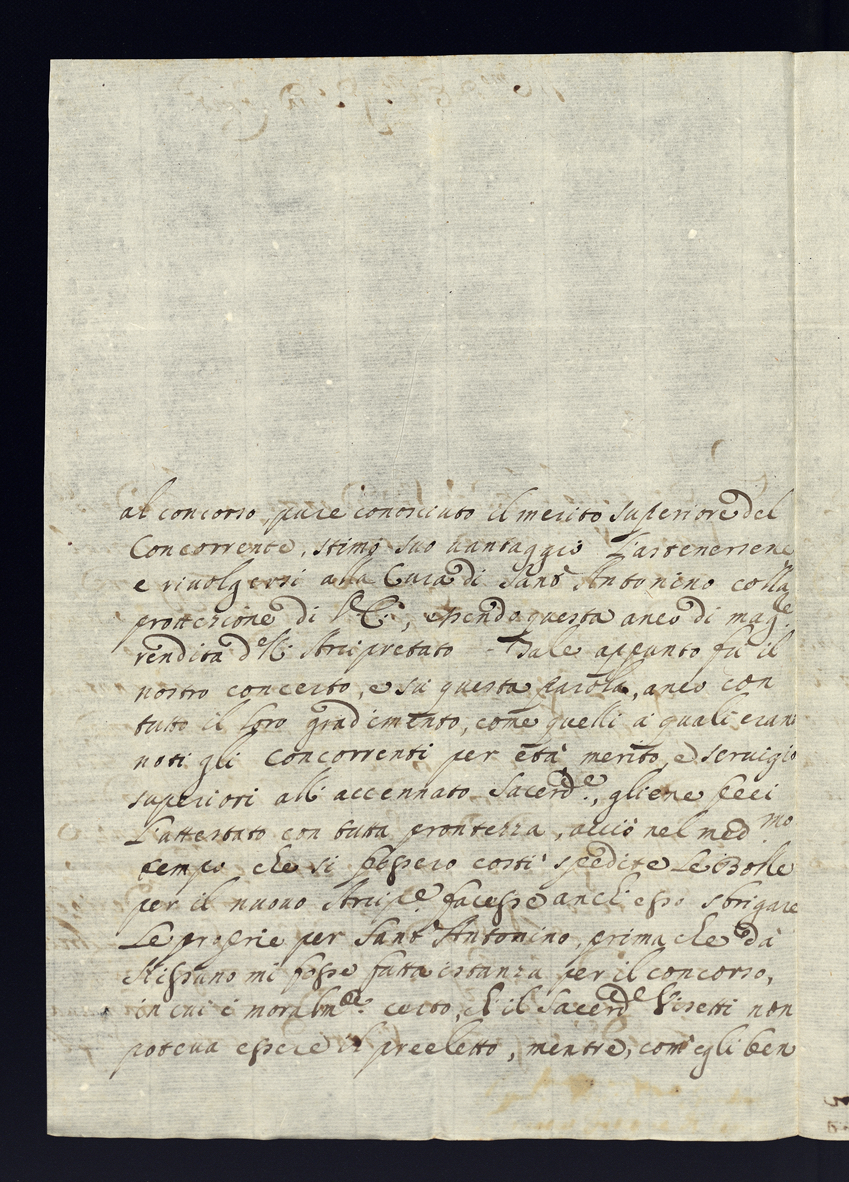 al concorso, pure conosciuto il merito superiore del
Concorrente, stimò suo uantaggio l'astenersene
e riuolgersi alla Cura di Sant' Antonino colla
protezione di V.E., essendo questa anco di magre
rendita dell' Arcipretato. Tale appunto fù il
nostro concerto, e sù questa parola, anco con
tutto il loro gradimento, come quelli à quali erano
noti gli Concorrenti per età merito, e seruigio
superiori all' accennato Sacerde., gliene feci
l'attestato con tutta prontezza, acciò nel medmo
tempo che si fossero costì spedite le Bolle
per il nuouo Arcipe. facesse anch' esso sbrigare
le proprie per Sant' Antonino, prima che da
Nissuno mi fosse fatta istanza per il concorso,
in cui è moralmte. certo, ch' il Sacerde Visetti non
poteua essere il preeletto, mentre, com' egli ben